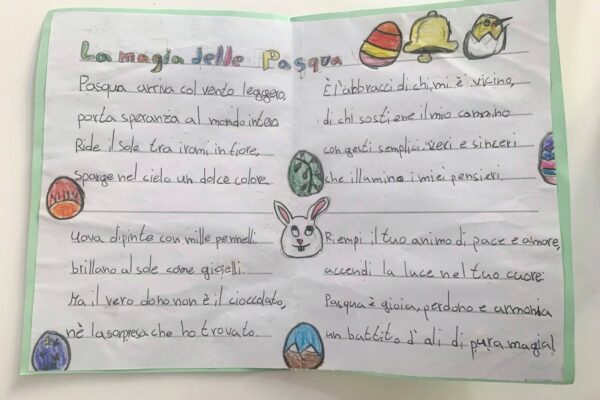 La magia delle Pasqua
Pasqua arriva col vento leggero,
porta speranza al mondo intero.
Ride il sole tra i rami in fiore,
sparge nel cielo un dolce colore.
Uova dipinte con mille pennelli
brillano al sole come gioielli.
Ma il vero dono non è il cioccolato,
nè la sorpresa che ho trovato.
È l'abbracci di chi mi è vicino,
di chi sostiene il mio cammino
con gesti semplici veri e sinceri
che illumino i miei pensieri.
Riempi il tuo animo di pace e amore,
accendi la luce nel tuo cuore.
Pasqua è gioia, perdono e armonia
un battito d'ali di pura magia!